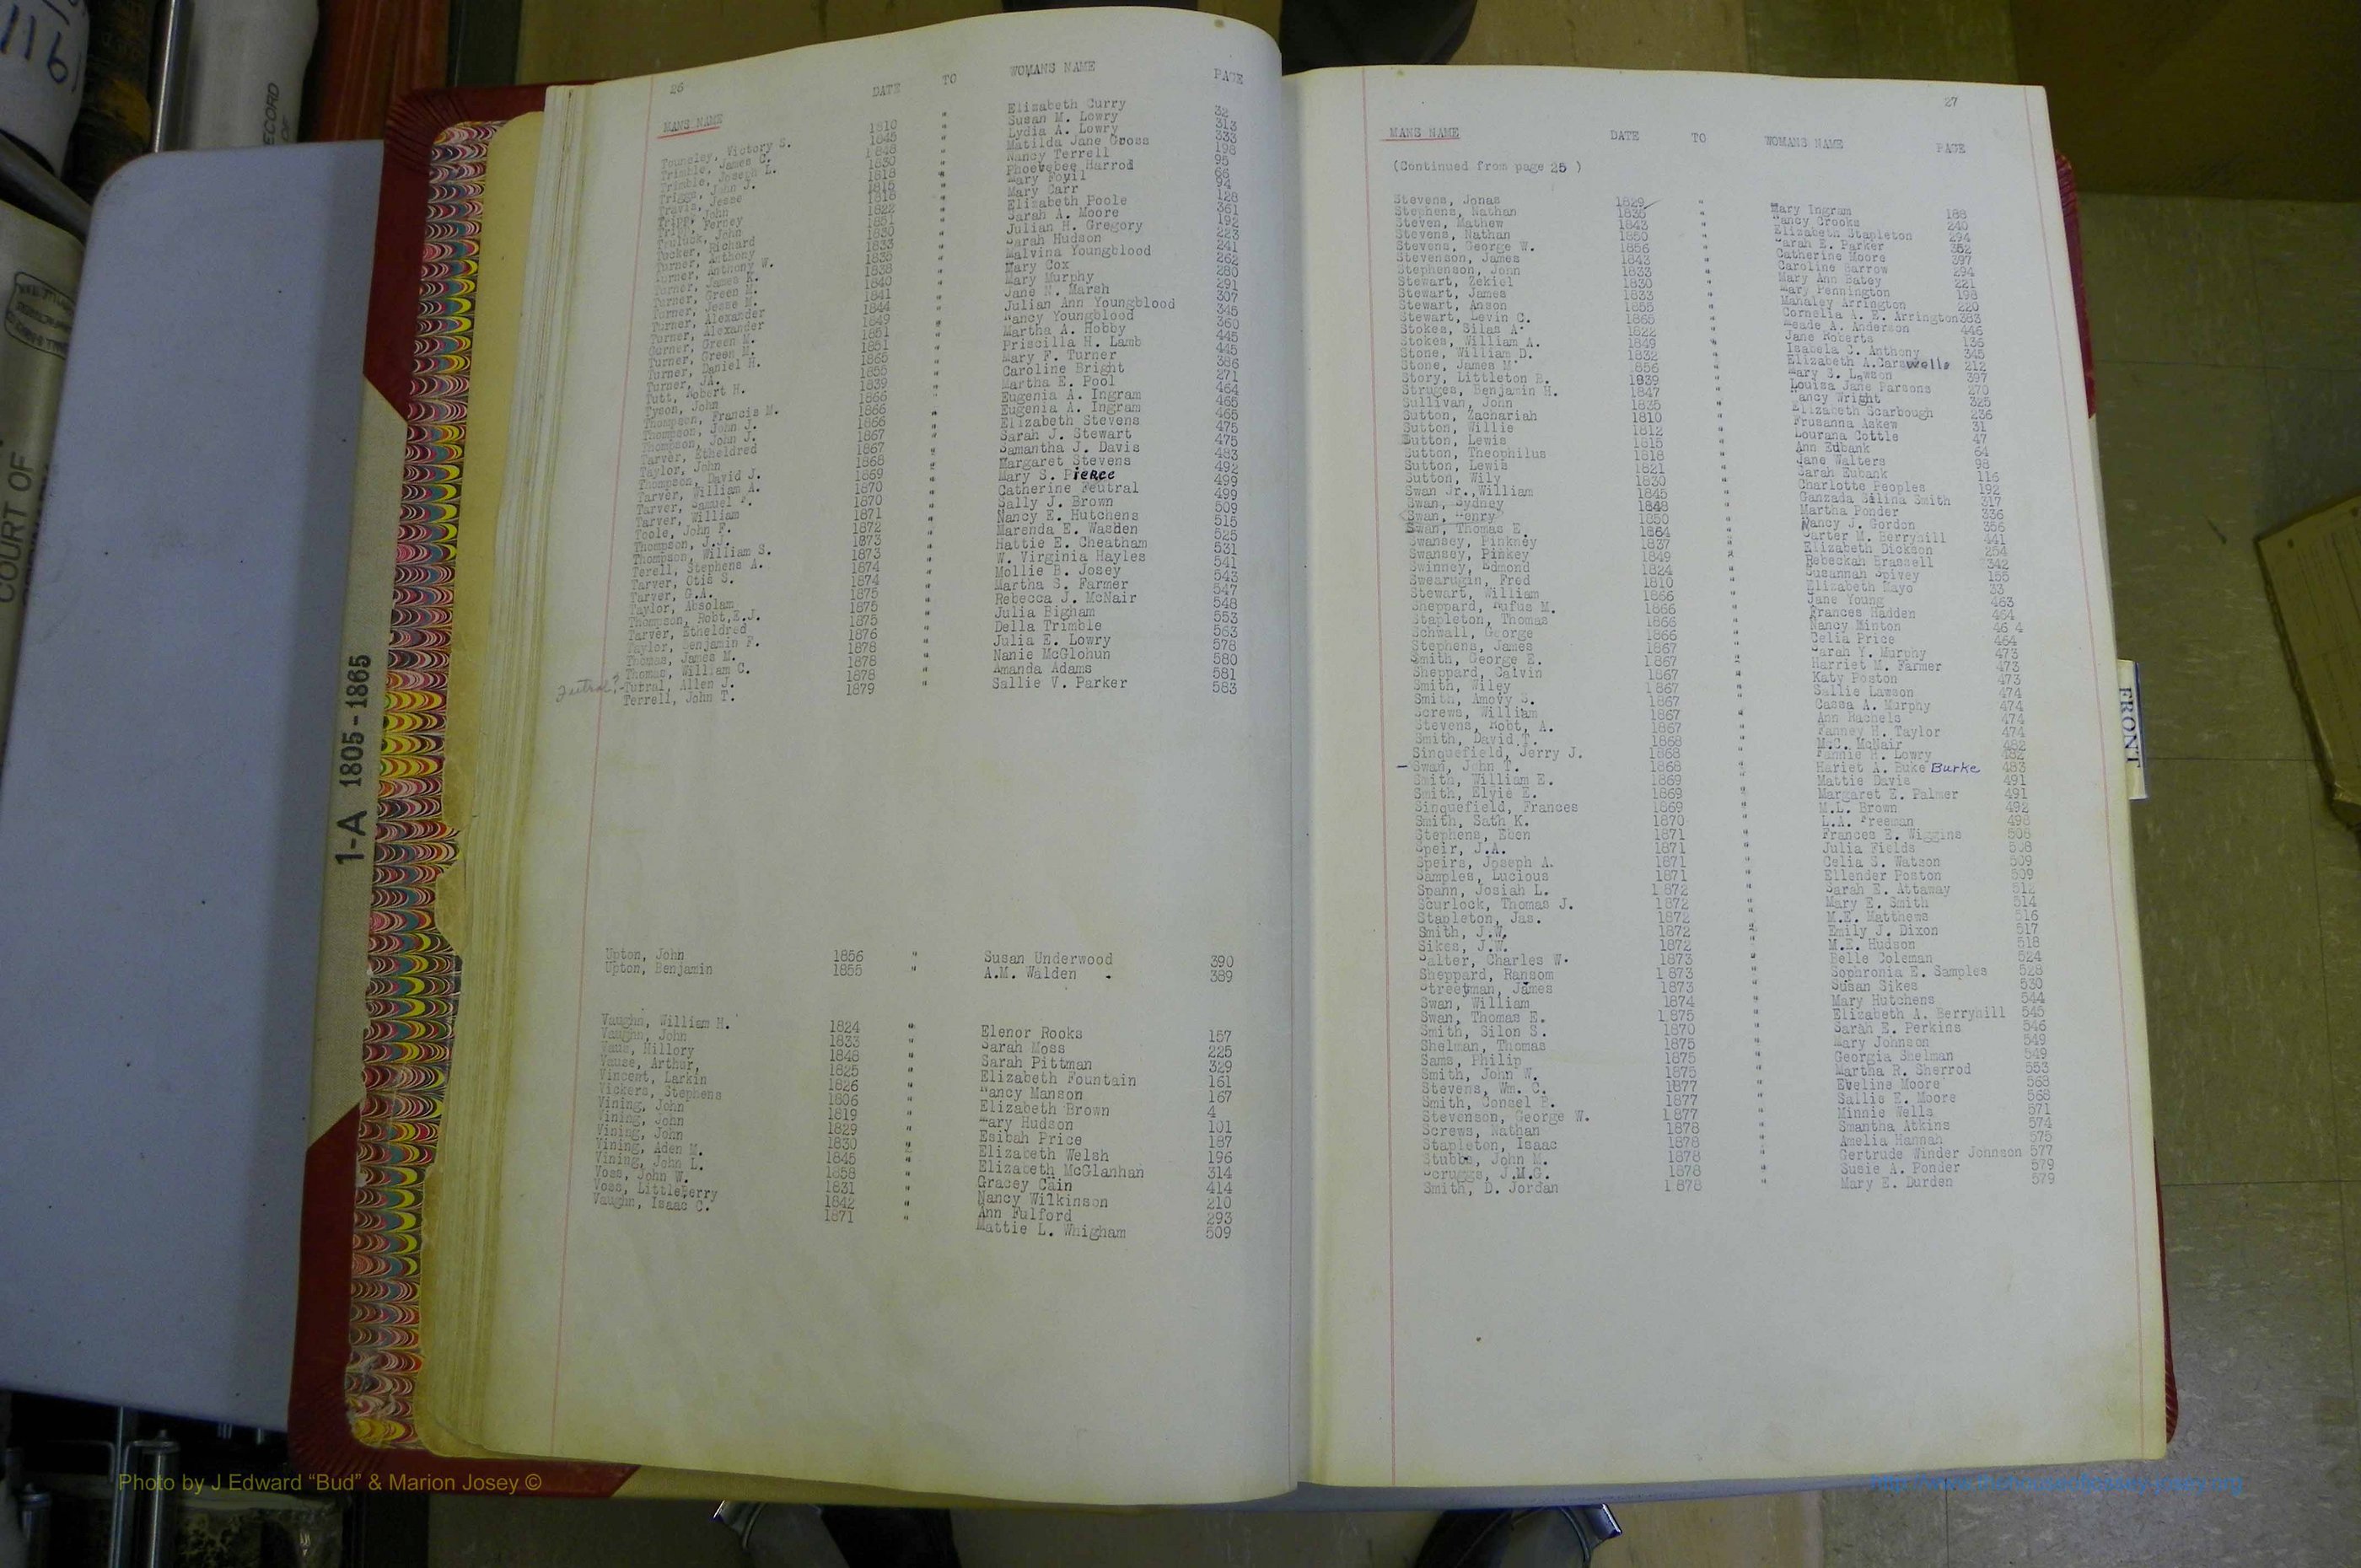 26
MANS NAME DATE TO WOMANS NAME PAGE
Tounsley, Victory S. 1810 " Elizabeth Curry 32
Trimble, James C. 1845 " Susan M. Lowry 313
Trimble, Joseph L. 1848 " Lydia A. Lowry 333
Triggs, John J. 1830 " Matilda Jane Gross 198
Travis, Jesse 1818 " Nancy Terrell 95
Tripp, John 1815 " Phoebee Harrod 66
Tripp, Ferney 1818 " Mary Foyil 94
Truluck, John 1822 " Mary Carr 128
Tucker, Richard 1851 " Elizabeth Poole 361
Turner, Anthony 1830 " Sarah A. Moore 192
Turner, Anthony W. 1833 " Julian H. Gregory 223
Turner, James K. 1835 " Sarah Hudson 241
Turner, Green M. 1838 " Malvina Youngblood 262
Turner, Jesse M. 1840 " Mary Cox 280
Turner, Alexander 1841 " Mary Murphy 291
Turner, Alexander 1844 " Jane N. Marsh 307
Gurner, Green M. 1849 " Julian Ann Youngblood 345
Turner, Green M. 1851 " Nancy Youngblood 360
Turner, Daniel H. 1851 " Martha A. Hobby 445
Turner, JA. 1865 " Priscilla H. Lamb 445
Tutt, Robert H. 1855 " Mary F. Turner 386
Tyson, John 1839 " Caroline Bright 271
Thompson, Francis M. 1866 " Martha E. Pool 464
Thompson, John J. 1866 " Eugenia A. Ingram 465
Thompson, John J. 1866 " Eugenia A. Ingram 465
Tarver, Etheldred 1867 " Elizabeth Stevens 475
Taylor, John 1867 " Sarah J. Stewart 475
Thompson, David J. 1868 " Samantha J. Davis 483
Tarver, William A. 1869 " Margaret Stevens 492
Tarver, Samuel P. 1870 " Mary S. Pierce 499
Tarver, William 1870 " Catherine Feutral 499
Toole, John F. 1871 " Sally J. Brown 509
Thompson, J.J. 1872 " Nancy E. Hutchens 515
Thompson, William S. 1873 " Marenda E. Wasden 525
Terell, Stephens A. 1873 " Hattie E. Cheatham 531
Tarver, Otis S. 1874 " W. Virginia Hayles 541
Tarver, G.A. 1874 " Mollie B. Josey 543
Taylor, Absolam 1875 " Martha S. Farmer 547
Thompson, Robt,E.J. 1875 " Rebecca J. McNair 548
Tarver, Etheldred 1875 " Julia Bigham 553
Taylor, Benjamin F. 1876 " Della Trimble 563
Thomas, James M. 1878 " Julia E. Lowry 578
Thomas, William C. 1878 " Nanie McGlohun 580
Futral? Tutral, Allen J. 1878 " Amanda Adams 581
Terrell, John T. 1879 " Sallie V. Parker 583
Upton, John 1856 " Susan Underwood 390
Upton, Benjamin 1855 " A.M. Walden 389
Vaughn, William H. 1824 " Elenor Rooks 157
Vaughn, John 1833 " Sarah Moss 225
Vaus, Hillory 1848 " Sarah Pittman 329
Vause, Arthur, 1825 " Elizabeth Fountain 161
Vincent, Larkin 1826 " Nancy Manson 167
Vickers, Stephens 1806 " Elizabeth Brown 4
Vining, John 1819 " Mary Hudson 101
Vining, John 1829 " Esibah Price 187
Vining, John 1830 " Elizabeth Welsh 196
Vining, Aden M. 1845 " Elizabeth McGlanhan 314
Vining, John L. 1858 " Gracey Cain 414
Voss, John W. 1831 " Nancy Wilkinson 210
Voss, Littleberry 1842 " Ann Fulford 293
Vaughn, Isaac C. 1871 " Mattie L. Whigham 509
27
MANS NAME DATE TO WOMANS NAME PAGE
(Continued from page 25 )
Stevens, Jonas 1829 " Mary Ingram 188
Stephens, Nathan 1835 " Nancy Crooks 240
Steven, Mathew 1843 " Elizabeth Stapleton 294
Stevens, Nathan 1850 " Sarah E. Parker 352
Stevens, George W. 1856 " Catherine Moore 397
Stevenson, James 1843 " Caroline Barrow 294
Stephenson, John 1833 " Mary Ann Batey 221
Stewart, Zekiel 1830 " Mary Pennington 198
Stewart, James 1833 " Mahaley Arrington 220
Stewart, Anson 1855 " Cornelia A. E. Arrington 383
Stewart, Levin C. 1865 " Meade A. Anderson 446
Stokes, Silas A. 1822 " Jane Roberts 136
Stokes, William A. 1849 " Isabela C. Anthony 345
Stone, William D. 1832 " Elizabeth A.Carswells 212
Stone, James M. 1856 " Mary S. Lawson 397
Story, Littleton B. 1839 " Louisa Jane Parsons 270
Struges, Benjamin H. 1847 " Nancy Wright 325
Sullivan, John 1835 " Elizabeth Scarbough 236
Sutton, Zachariah 1810 " Frusanna Askew 31
Sutton, Willie 1812 " Lourana Cottle 47
Sutton, Lewis 1815 " Ann Edbank 64
Sutton, Theophilus 1818 " Jane Walters 98
Sutton, Lewis 1821 " Sarah Eubank 116
Sutton, Wily 1830 " Charlotte Peoples 192
Swan Jr.,William 1845 " Ganzada Silina Smith 317
Swan, Sydney 1848 " Martha Ponder 336
Swan, Henry 1850 " Nancy J. Gordon 356
Swan, Thomas E. 1864 " Carter M. Berryhill 441
Swansey, Pinkney 1837 " Elizabeth Dickson 254
Swansey, Pinkey 1849 " Rebeckah Brassell 342
Swinney, Edmond 1824 " Susannah Spivey 155
Swearugin, Fred 1810 " Elizabeth Mayo 33
Stewart, William 1866 " Jane Young 463
Sheppard, Rufus M. 1866 " Frances Hadden 464
Stapleton, Thomas 1866 " Nancy Minton 46 4
Schwall, George 1866 " Celia Price 464
Stephens, James 1867 " Sarah Y. Murphy 473
Smith, George E. 1867 " Harriet M. Farmer 473
Sheppard, Calvin 1867 " Katy Poston 473
Smith, Wiley 1867 " Sallie Lawson 474
Smith, Amovy S. 1867 " Cassa A. Murphy 474
Screws, William 1867 " Ann Rachels 474
Stevens, Robt, A. 1867 " Fanney H. Taylor 474
Smith, David T. 1868 " M.C. McNair 482
Sinquefield, Jerry J. 1868 " Fannie H. Lowry 482
- Swan, John T. 1868 " Hariet A. Buke Burke 483
Smith, William E. 1869 " Mattie Davis 491
Smith, Elvie E. 1869 " Margaret E. Palmer 491
Sinquefield, Frances 1869 " M.L. Brown 492
Smith, Sath K. 1870 " L.A. Freeman 498
Stephens, Eben 1871 " Frances E. Wiggins 508
Speir, J.A. 1871 " Julia Fields 508
Speirs, Joseph A. 1871 " Celia S. Watson 509
Samples, Lucious 1871 " Ellender Poston 509
Spann, Josiah L. 1872 " Sarah E. Attaway 512
Scurlock, Thomas J. 1872 " Mary E. Smith 514
Stapleton, Jas. 1872 " M.E. Matthews 516
Smith, J.W. 1872 " Emily J. Dixon 517
Sikes, J.W. 1872 " M.E. Hudson 518
Salter, Charles W. 1873 " Belle Coleman 524
Sheppard, Ransom 1873 " Sophronia E. Samples 528
Streetman, James 1873 " Susan Sikes 530
Swan, William 1874 " Mary Hutchens 544
Swan, Thomas E. 1875 " Elizabeth A. Berryhill 545
Smith, Silon S. 1870 " Sarah E. Perkins 546
Shelman, Thomas 1875 " Mary Johnson 549
Sams, Philip 1875 " Georgia Shelman 549
Smith, John W. 1875 " Martha R. Sherrod 553
Stevens, Wm. C. 1877 " Eveline Moore 568
Smith, Consel B. 1877 " Sallie E. Moore 568
Stevenson, George W. 1877 " Minnie Wells 571
Screws, Nathan 1878 " Smantha Atkins 574
Stapleton, Isaac 1878 " Amelia Hannah 575
Stubbs, John M. 1878 " Gertrude Winder Johnson 577
Scruggs, J.M.G. 1878 " Susie A. Ponder 579
Smith, D. Jordan 1878 " Mary E. Durden 579
1-A 1805-1865
COURT OF
RECORD
1161
FRONT
Photo by J Edward “Bud” & Marion Josey ©